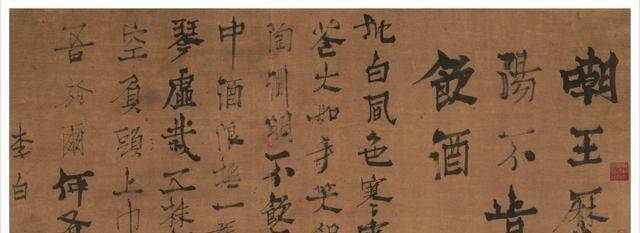 嘲王歷
陽不肯
飲酒
地白風色寒
花大如手笑殺
陶淵明不飲
中酒浪撫一
琴虛栽五株
空負頭上巾
吾於爾何有
李白